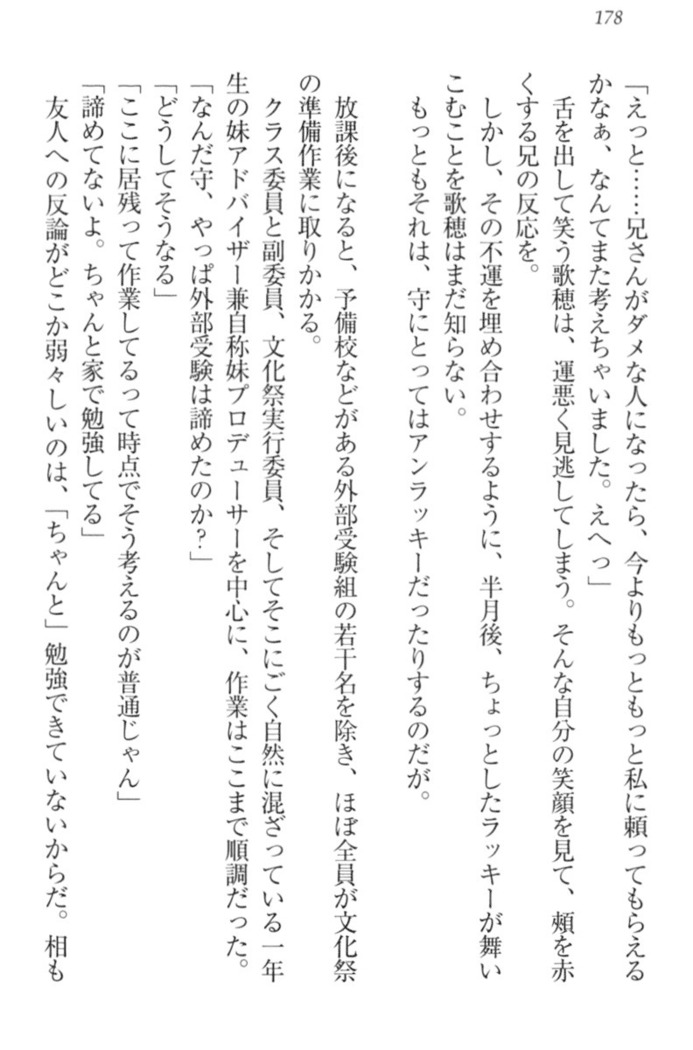 178
「えっと……兄さんがダメな人になったら、今よりもっともっと私に頼ってもらえる
かなぁ、なんてまた考えちゃいました。えへっ」
舌を出して笑う歌穂は、運悪く見逃してしまう。そんな自分の笑顔を見て、頰を赤
くする兄の反応を。
しかし、その不運を埋め合わせするように、半月後、ちょっとしたラッキーが舞い
こむことを歌穂はまだ知らない。
もっともそれは、守にとってはアンラッキーだったりするのだが。
放課後になると、予備校などがある外部受験組の若干名を除き、ほぼ全員が文化祭
の準備作業に取りかかる。
クラス委員と副委員、文化祭実行委員、そしてそこにごく自然に混ざっている一年
生の妹アドバイザー兼自称妹プロデューサーを中心に、作業はここまで順調だった。
「なんだ守、やっぱ外部受験は諦めたのか?」
「どうしてそうなる」
「ここに居残って作業してるって時点でそう考えるのが普通じゃん」
「諦めてないよ。ちゃんと家で勉強してる」
友人への反論がどこか弱々しいのは、「ちゃんと」勉強できていないからだ。相も